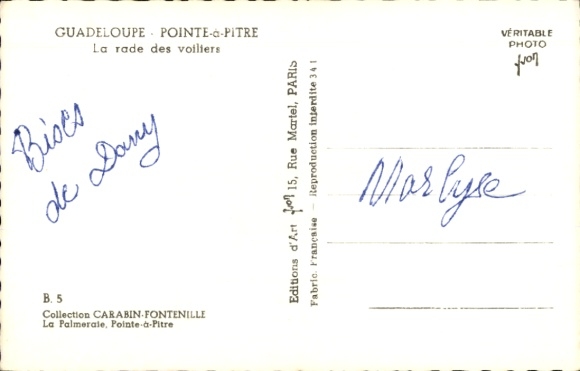 GUADELOUPE - POINTE-à-PITRE
La rade des voiliers
VÉRITABLE
PHOTO
yvon
Bises
de Dany
Marlyse
Editions d'Art yvon 15, Rue Martel, PARIS
Fabric. Française - Reproduction Interdite 341
B. 5
Collection CARABIN-FONTENILLE
La Palmeraie, Pointe-à-Pitre